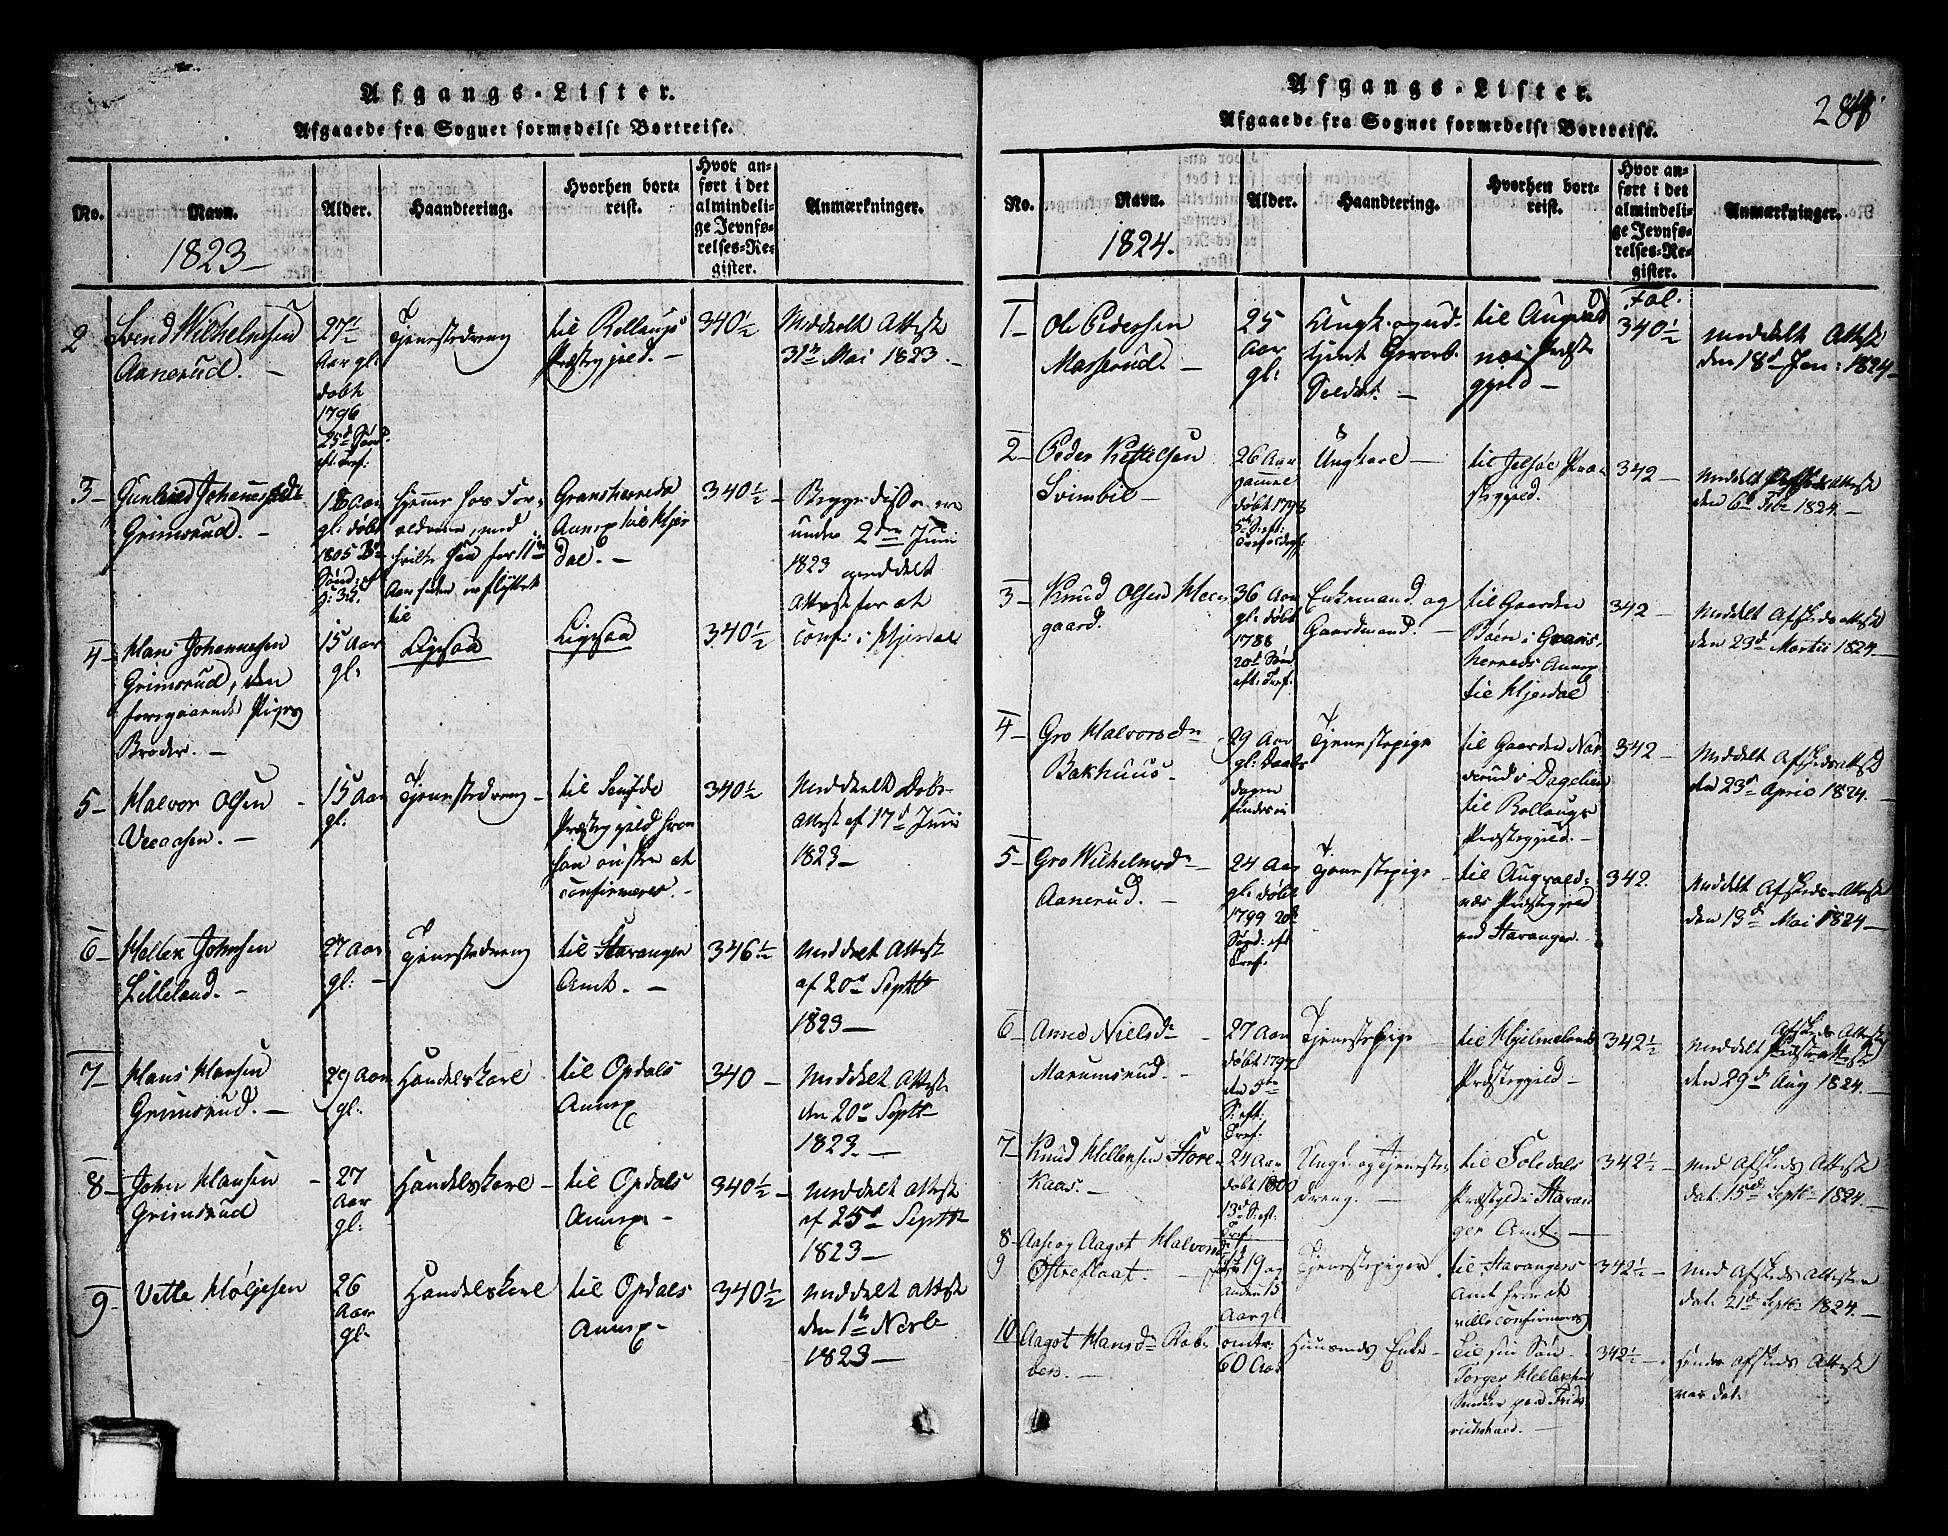 Afgangs-Lister.
Afgaaede fra Sognet formedelst Bortreise.
No.
Navn.
1823
Alder.
Haandtering.
Hvorhen bort-
reist.
Hvor an-
ført i det
almindeli-
ge Jevnfø-
relses-Re-
gister.
Anmærkninger.
2
Svend Wilhelmsen
Aanerud. -
27
Aar gl:
døbt
1796
25d Sønd.
eft. Tref:
Tjenestedreng
til Rollaugs
Præstegjeld. -
340½
Meddeelt Attest
31te Mai 1823. -
3 -
Gunhild Johannesd:
Grimsrud. -
18 Aar
gl: døbt
1805
hjemme hos For-
ældrene, med
hvilke hun for 11
Aar siden er flyttet
til
Gransherreds
Annex til Hjer
dal. -
340½ -
Begge disse ere
under 2den Juni
1823 meddelt
Attest for at
conf: i Hjerdal
4 -
Hans Johannesen
Grimsrud, den
foregaaende Piges
Broder. -
15 Aar
gl:
Ligesaa
Ligesaa
340½
5 -
Halvor Olsen
Veeaasen. -
15 Aar
gl:
Tjenestedreng -
til Saufde
Præstegjeld hvor
han ønsker at
confirmeres. -
340½
Meddeelt Døbs-
Attest af 17d Juni
1823 -
6 -
Hellek Johnsen
Lilleland. -
27 Aar
gl: -
Tjenestedreng
til Stavanger
Amt. -
346½
Meddelt Attest
af 20d Septbr
1823 -
7 -
Hans Hansen
Grimsrud. -
29 Aar
gl:
Handelskarl -
til Opdals
Annex
340 -
Meddelt Attest
den 20d Septbr
1823. -
8 -
John Hansen
Grimsrud
27
Aar
gl:
Handelskarl -
til Opdals
Annex -
340½ -
Meddelt Attest
af 25d Septbr
1823 -
9 -
Vetle Høljesen
26
Aar
gl:
Handelskarl
til Opdals
Annex -
340½
Meddelt Attest
den 1te Novb
1823 -
Afgangs-Lister.
Afgaaede fra Sognet formedelst Bortreise.
No.
Navn.
1824.
Alder.
Haandtering.
Hvorhen bort-
reist.
Hvor an-
ført i det
almindeli-
ge Jevnfø-
relses-Re-
gister.
Anmærkninger.
1 -
Ole Pedersen
Masserud. -
25
Aar
gl:
Ungk. og ud-
tjent Gevorb.
Soldat. -
til Augvald
næs Præste
gjeld -
Fol.
340½
Meddelt Attest
den 18d Jan: 1824 -
2 -
Peder Kittelsen
Svimbil -
26 Aar
gammel
døbt 1798
Ungkarl -
til Jelsøe Præ-
stegjeld.
342 -
Meddelt Attest
den 6te Febr 1824. -
3 -
Knud Olsen Meen
gaard.
36 Aar
gl: døbt
1788
20d Sønd
eft: Tref:
Enkemand og
Gaardmand. -
til Gaarden
Böen i Grans-
herreds Annex
til Hjerdal
342 -
Meddelt Afskedsattest
den 29d Martii 1824. -
4 -
Gro Halvorsdr
Bakhuus.
29 Aar
gl: Daabs
dagen
findes ei
Tjenestepige
til Gaarden
i Dagalien
til Rollaugs
Præstegjeld. -
342 -
Meddelt Afskedsattest
den 23d April 1824. -
5 -
Gro Wilhelmsdr
Aanerud.
24 Aar
gl: døbt
1799 20d
Sønd: eft
Tref.
Tjenestepige -
til Augvalds-
næs Præstegjeld
ved Stavanger. -
342.
Meddelt Afskeds-Attest
den 13d Mai 1824 -
6 -
Anne Nielsdr
Marumsrud. -
27 Aar
døbt 1797
den 5te
S: eft:
Tref.
Tjenestepige -
til Hjelmelands
Præstegjeld -
342½
Meddelt Afskeds Attest
den 29d Aug 1824. -
7 -
Knud Hellersen Store-
Kaas. -
24 Aar
døbt 1800
13d S: eft:
Tref.
Ungk. og Tjeneste-
dreng. -
til Soledals
Præstegjeld i Stavan
ger Amt -
342½ -
Med Afskeds Attest
dat. 15d Septbr 1824. -
8 -
9
Aase og Aagot Halvorsd
Østreflaat. -
19 og
anden 15
Aar gl
Tjenestepiger
til Stavangers
Amt hvor de
ville confirmeres
342½ -
Med Afskeds Attester
dat. 21d Septbr 1824. -
10
Aagot Hansdr
-
omtr:
60 Aar
Huusmands Enke -
til sin Søn
Torger Hellersen
Smeder paa Fride
richshald. -
342½ -
hendes Afskeds Attest
var dat: